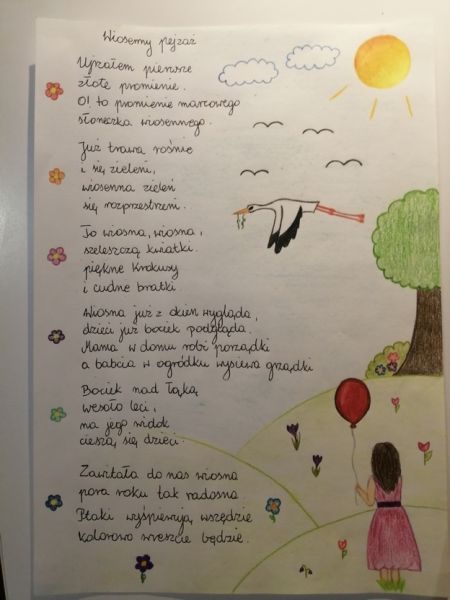 Wiosenny pejzaż
Ujrzałem pierwsze
złote promienie.
O! to promienie marcowego
słoneczka wiosennego.
Już trawa rośnie
i się zieleni,
wiosenna zieleń
się rozprzestrzeni.
To wiosna, wiosna,
szeleszczą kwiatki.
piękne krokusy
i cudne bratki
Wiosna już z okien wygląda,
dzieci już bociek podgląda.
Mama w domu robi porządki
a babcia w ogródku wysiewa grządki
Bociek nad łąką
wesoło leci,
na jego widok
cieszą się dzieci.
Zawitała do nas wiosna
pora roku tak radosna.
Ptaki wyśpiewują wszędzie
Kolorowo wreszcie będzie.